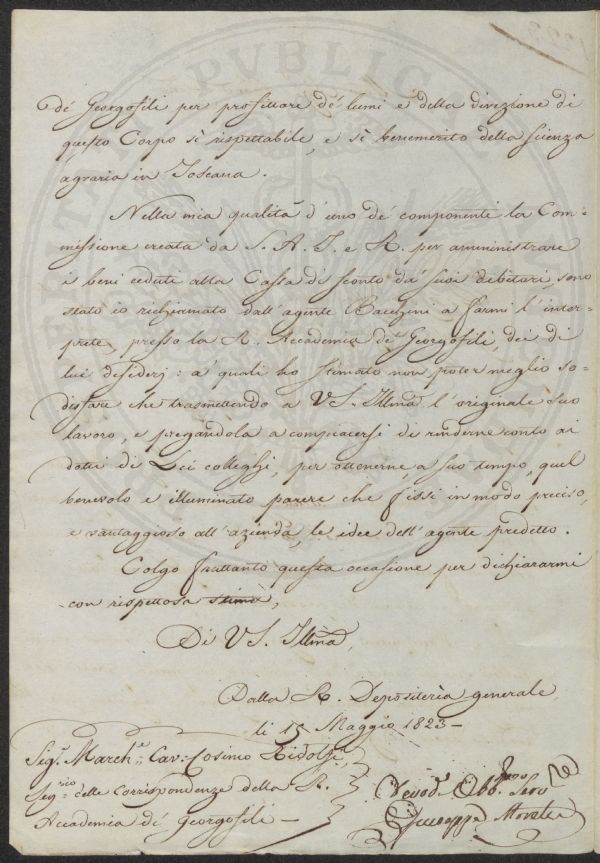 de' Georgofili per profittare de' lumi e della direzione di
questo Corpo sì rispettabile, e sì benemerito della scienza
agraria in Toscana.
Nella mia qualità d'uno de' componenti la Com=
missione creata da S. A. I. e R. per amministrare
i beni ceduti alla Cassa di sconto da' suoi debitori, sono
stato io richiamato dall'agente Bacchini a farmi l'inter=
prete, presso la R. Accademia de' Georgofili, dei di
lui desiderj: a' quali ho stimato non poter meglio so=
disfare che trasmettendo a VS. Illma l'originale suo
lavoro, e pregandola a compiacersi di renderne conto ai
dotti di Lei colleghi, per ottenerne, a suo tempo, quel
benevolo e illuminato parere che fissi in modo preciso,
e vantaggioso all'azienda, le idee dell'agente predetto.
Colgo frattanto questa occasione per dichiararmi
con rispettosa stima,
Di VS. Illma
Dalla R. Depositeria generale,
li 15 Maggio 1823 =
Sig.r March.e Cav: Cosimo Ridolfi
Seg.rio delle Corrispondenze della R.
Accademia de' Georgofili =
Devod. Obb. Serv
Giuseppe
PVBLICA
1823